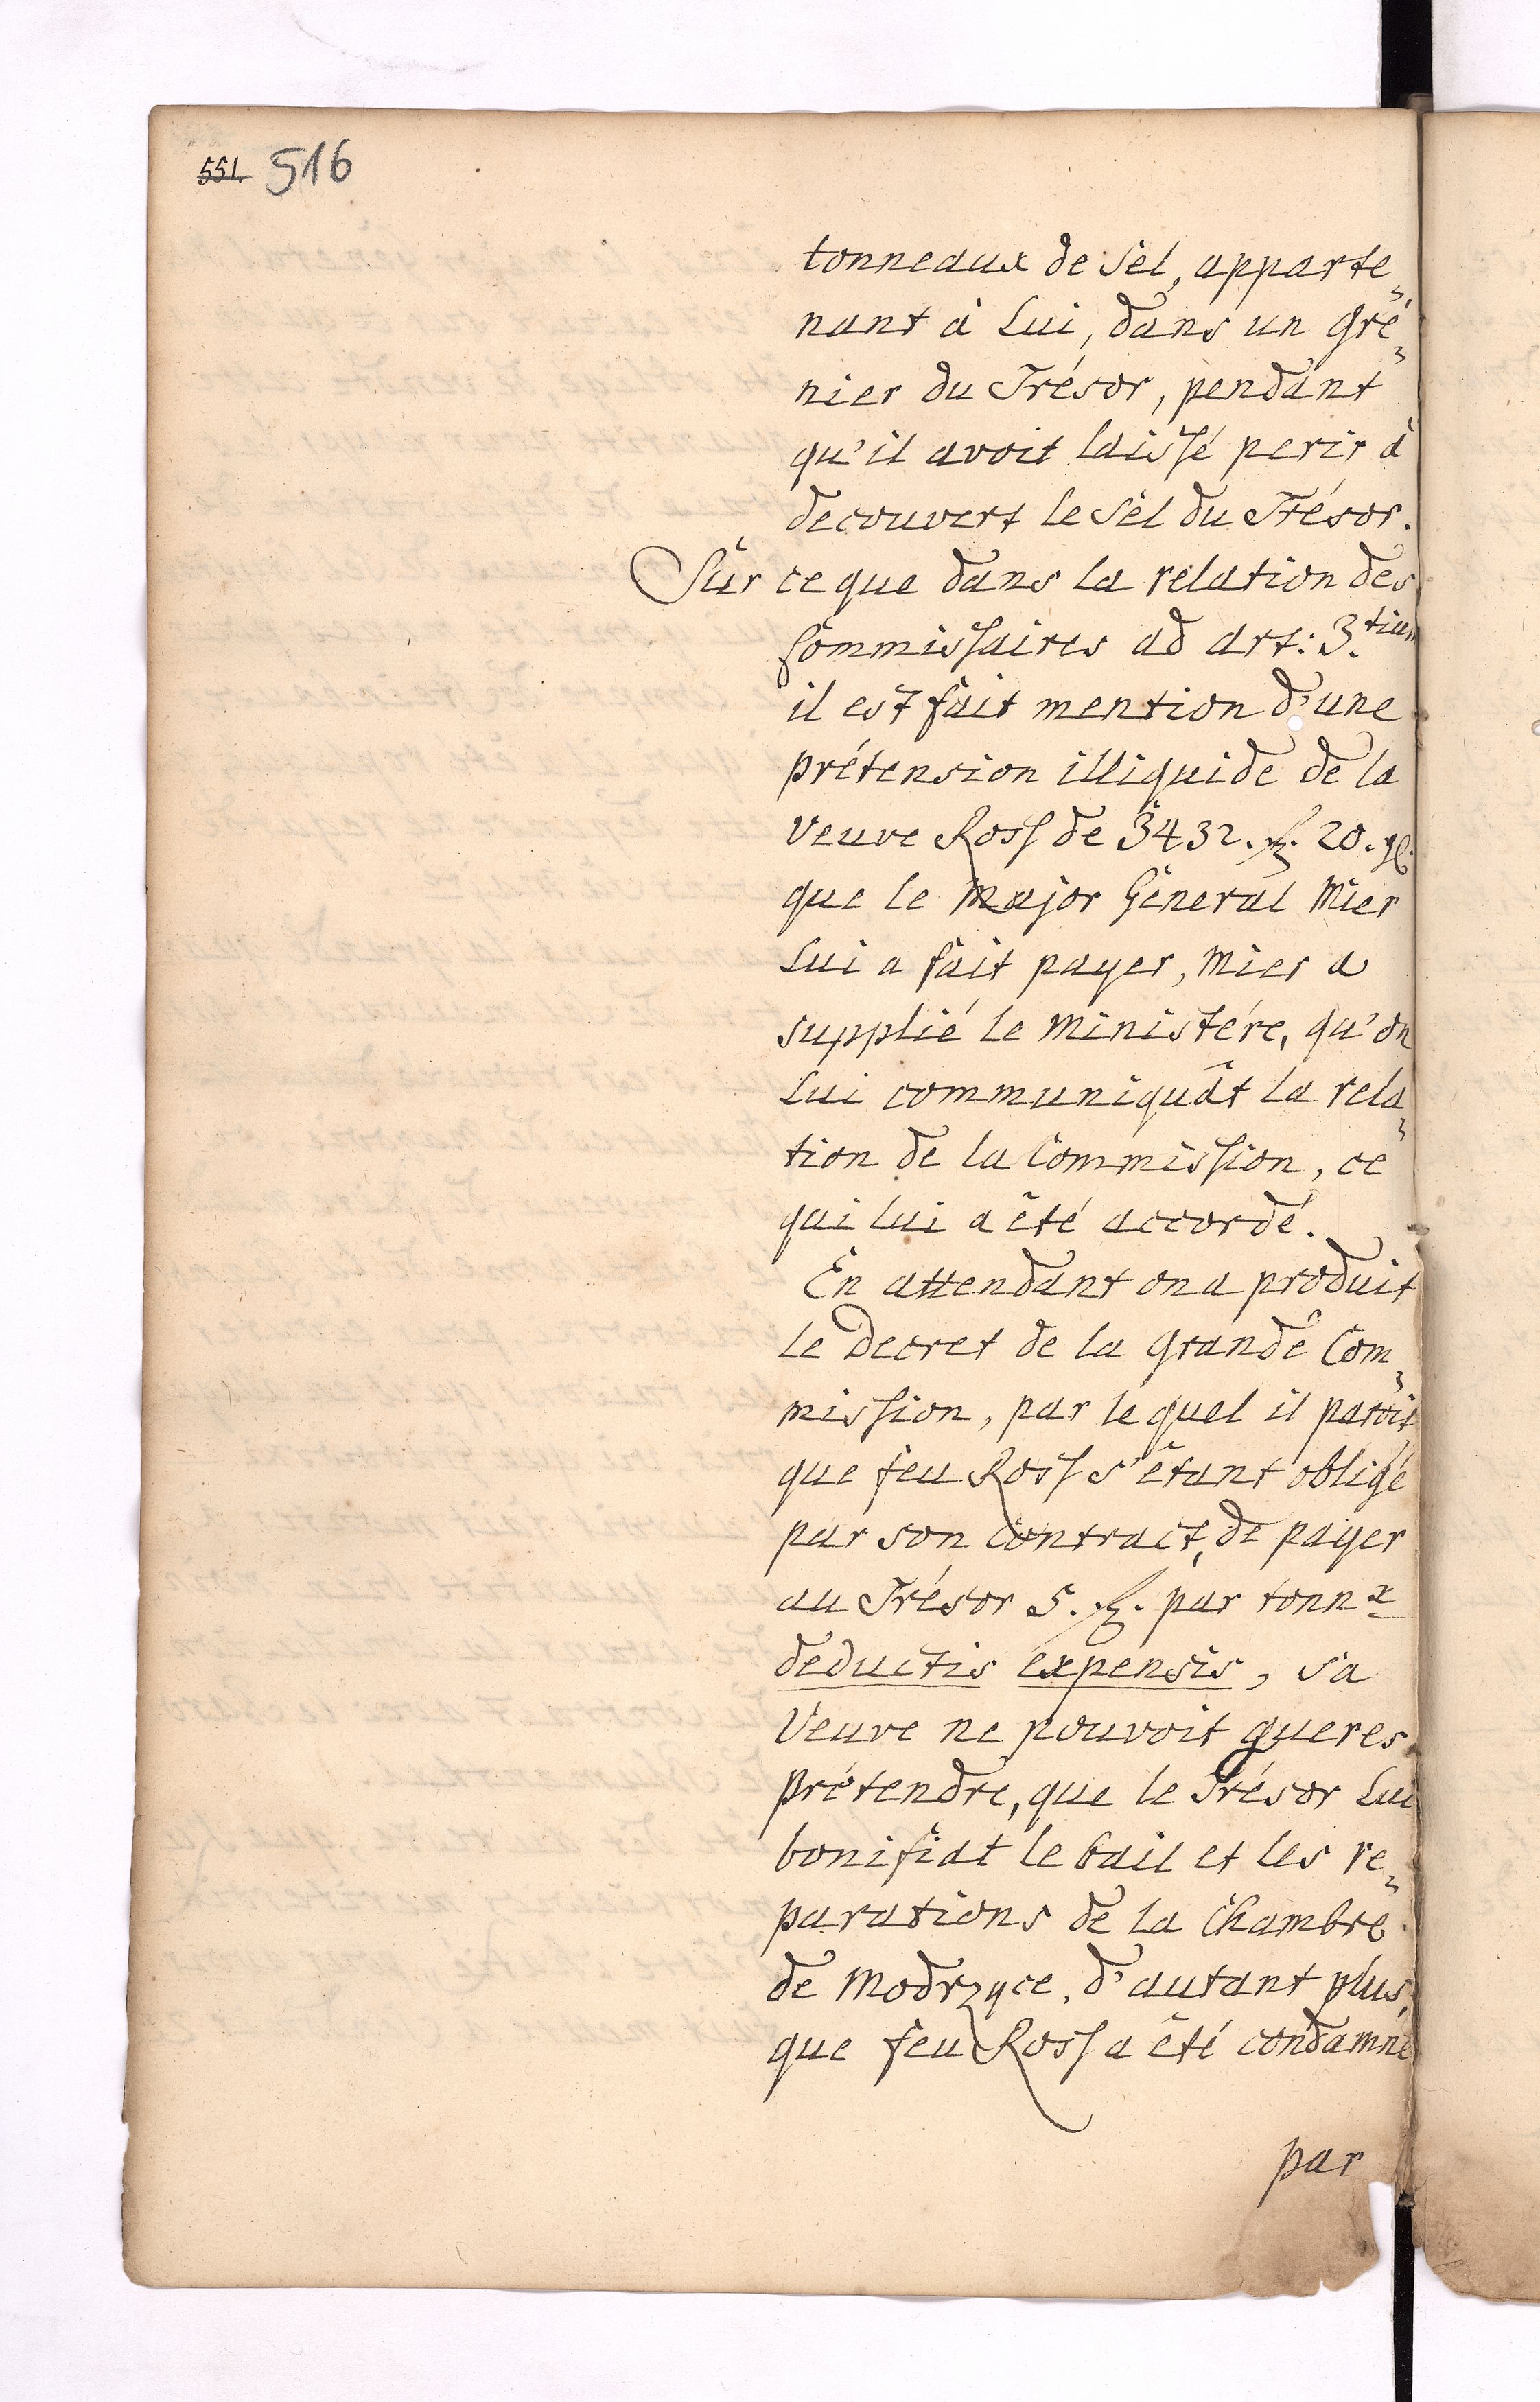 551. 516
tonneaux de Sel, apparte„
nant à Lui, dans un Gre„
nier du Trésor, pendant
qu'il avoit laissé perir à
decouvert le Sel du Trésor.
Sur ce que dans la relation des
Commissaires ad art: 3.tium
il est fait mention d'une
prétension illiquide de la
Veuve Ross de 3432. 20.
que le Major Géneral Mier
Lui a fait payer, Mier a
supplié le Ministére, qu'on
Lui communiquât la rela„
tion de la Commission, ce
qui lui a été accordé.
En attendant on a produit
le Decret de la Grande Com„
mission, par le quel il paroit
que feu Ross s'étant obligé
par son Contract, de payer
au Trésor 5. par tonnx
deductis expensis, sa
Veuve ne pouvoit gueres
prétendre, que le Trésor Lui
bonifiat le bail et les re„
parations de la Chambre
de Modrzyce, d'autant plus,
que feu Ross a été condamné
par